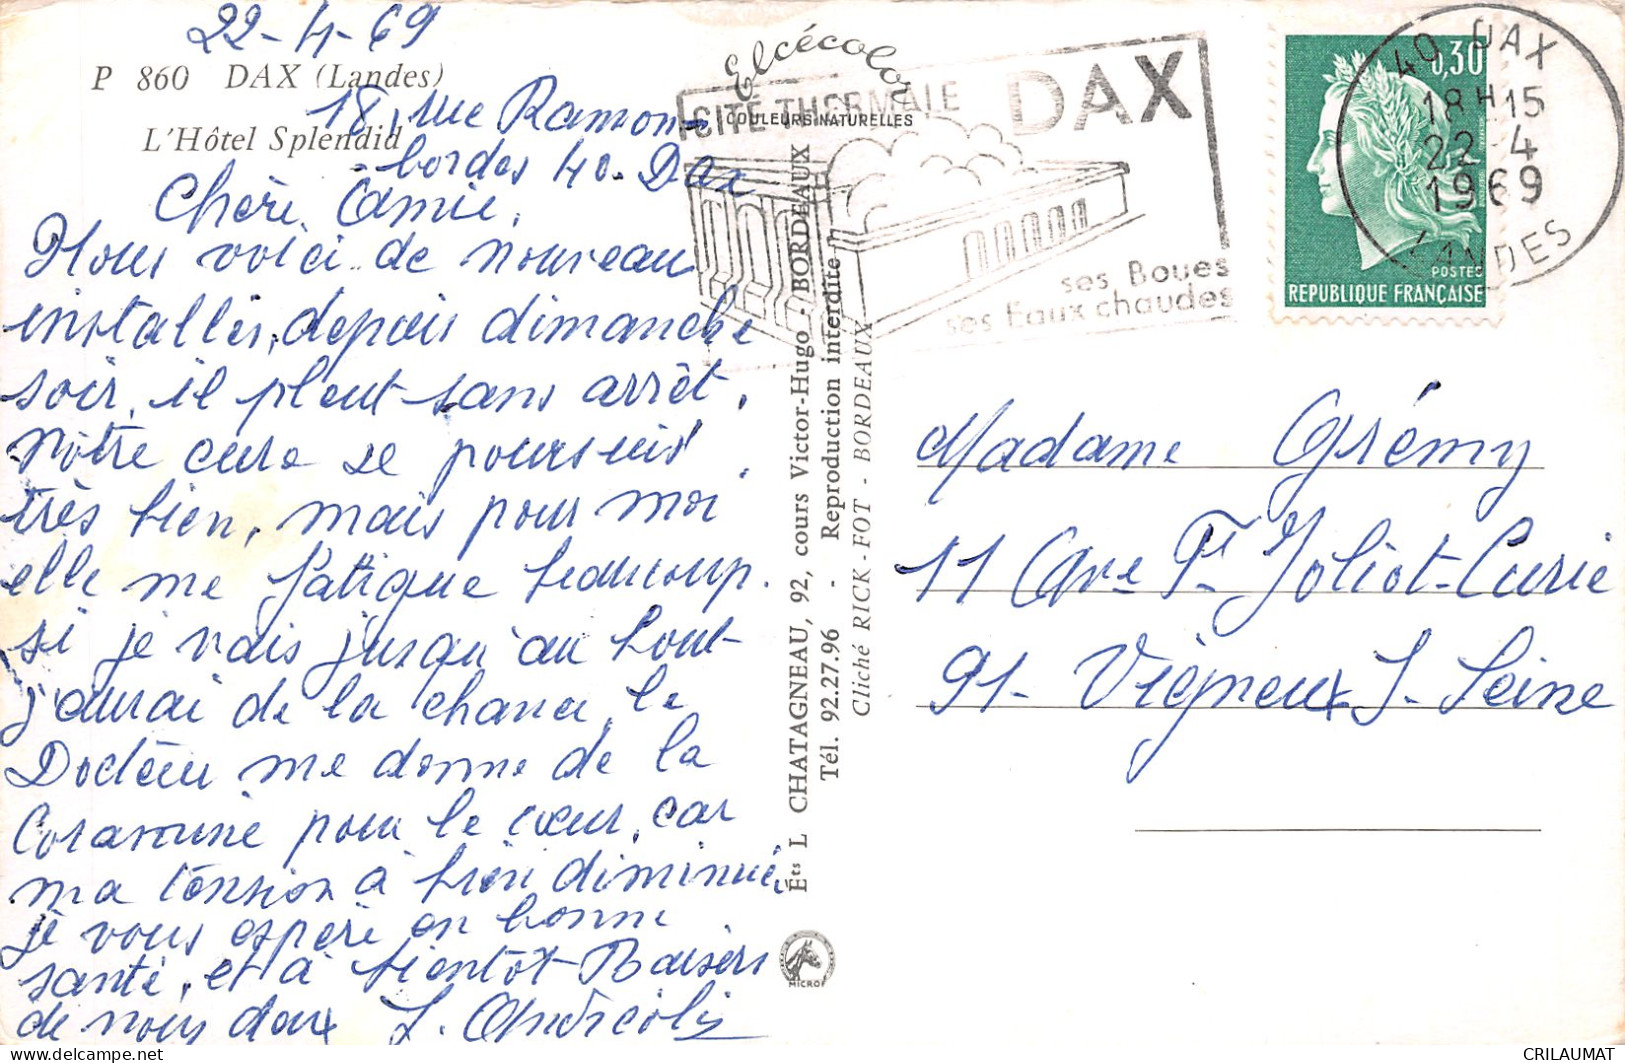 22-4-69
P 860 DAX (Landes)
18, rue Ramon
L'Hôtel Splendid
bordes 40. Dax
Chère Amie,
Nous voici de nouveau
installés, depuis dimanche
soir, il pleut sans arrêt.
Notre cure se poursuis
très bien, mais pour moi
elle me fatigue beaucoup.
si je vais jusqu'au bout
j'aurai de la chance, le
Docteur me donne de la
Coramine pour le cœur, car
ma tension à bien diminué,
je vous espère en bonne
santé, et à bientôt-Baisers
de nous deux
Elcécolor
COULEURS NATURELLES
CITÉ THERMALE DAX
ses Boues
ses Eaux chaudes
Éts L CHATAGNEAU, 92, cours Victor-Hugo - BORDEAUX
Tél. 92.27.96 - Reproduction interdite
Cliché RICK - FOT - BORDEAUX
MICRO
0,30
POSTES
REPUBLIQUE FRANÇAISE
40 DAX
18H15
22-4
1969
LANDES
Madame Grémy
11 Ave Ft Joliot-Curie
91- Vigneux S- Seine
CRILAUMAT
delcampe.net